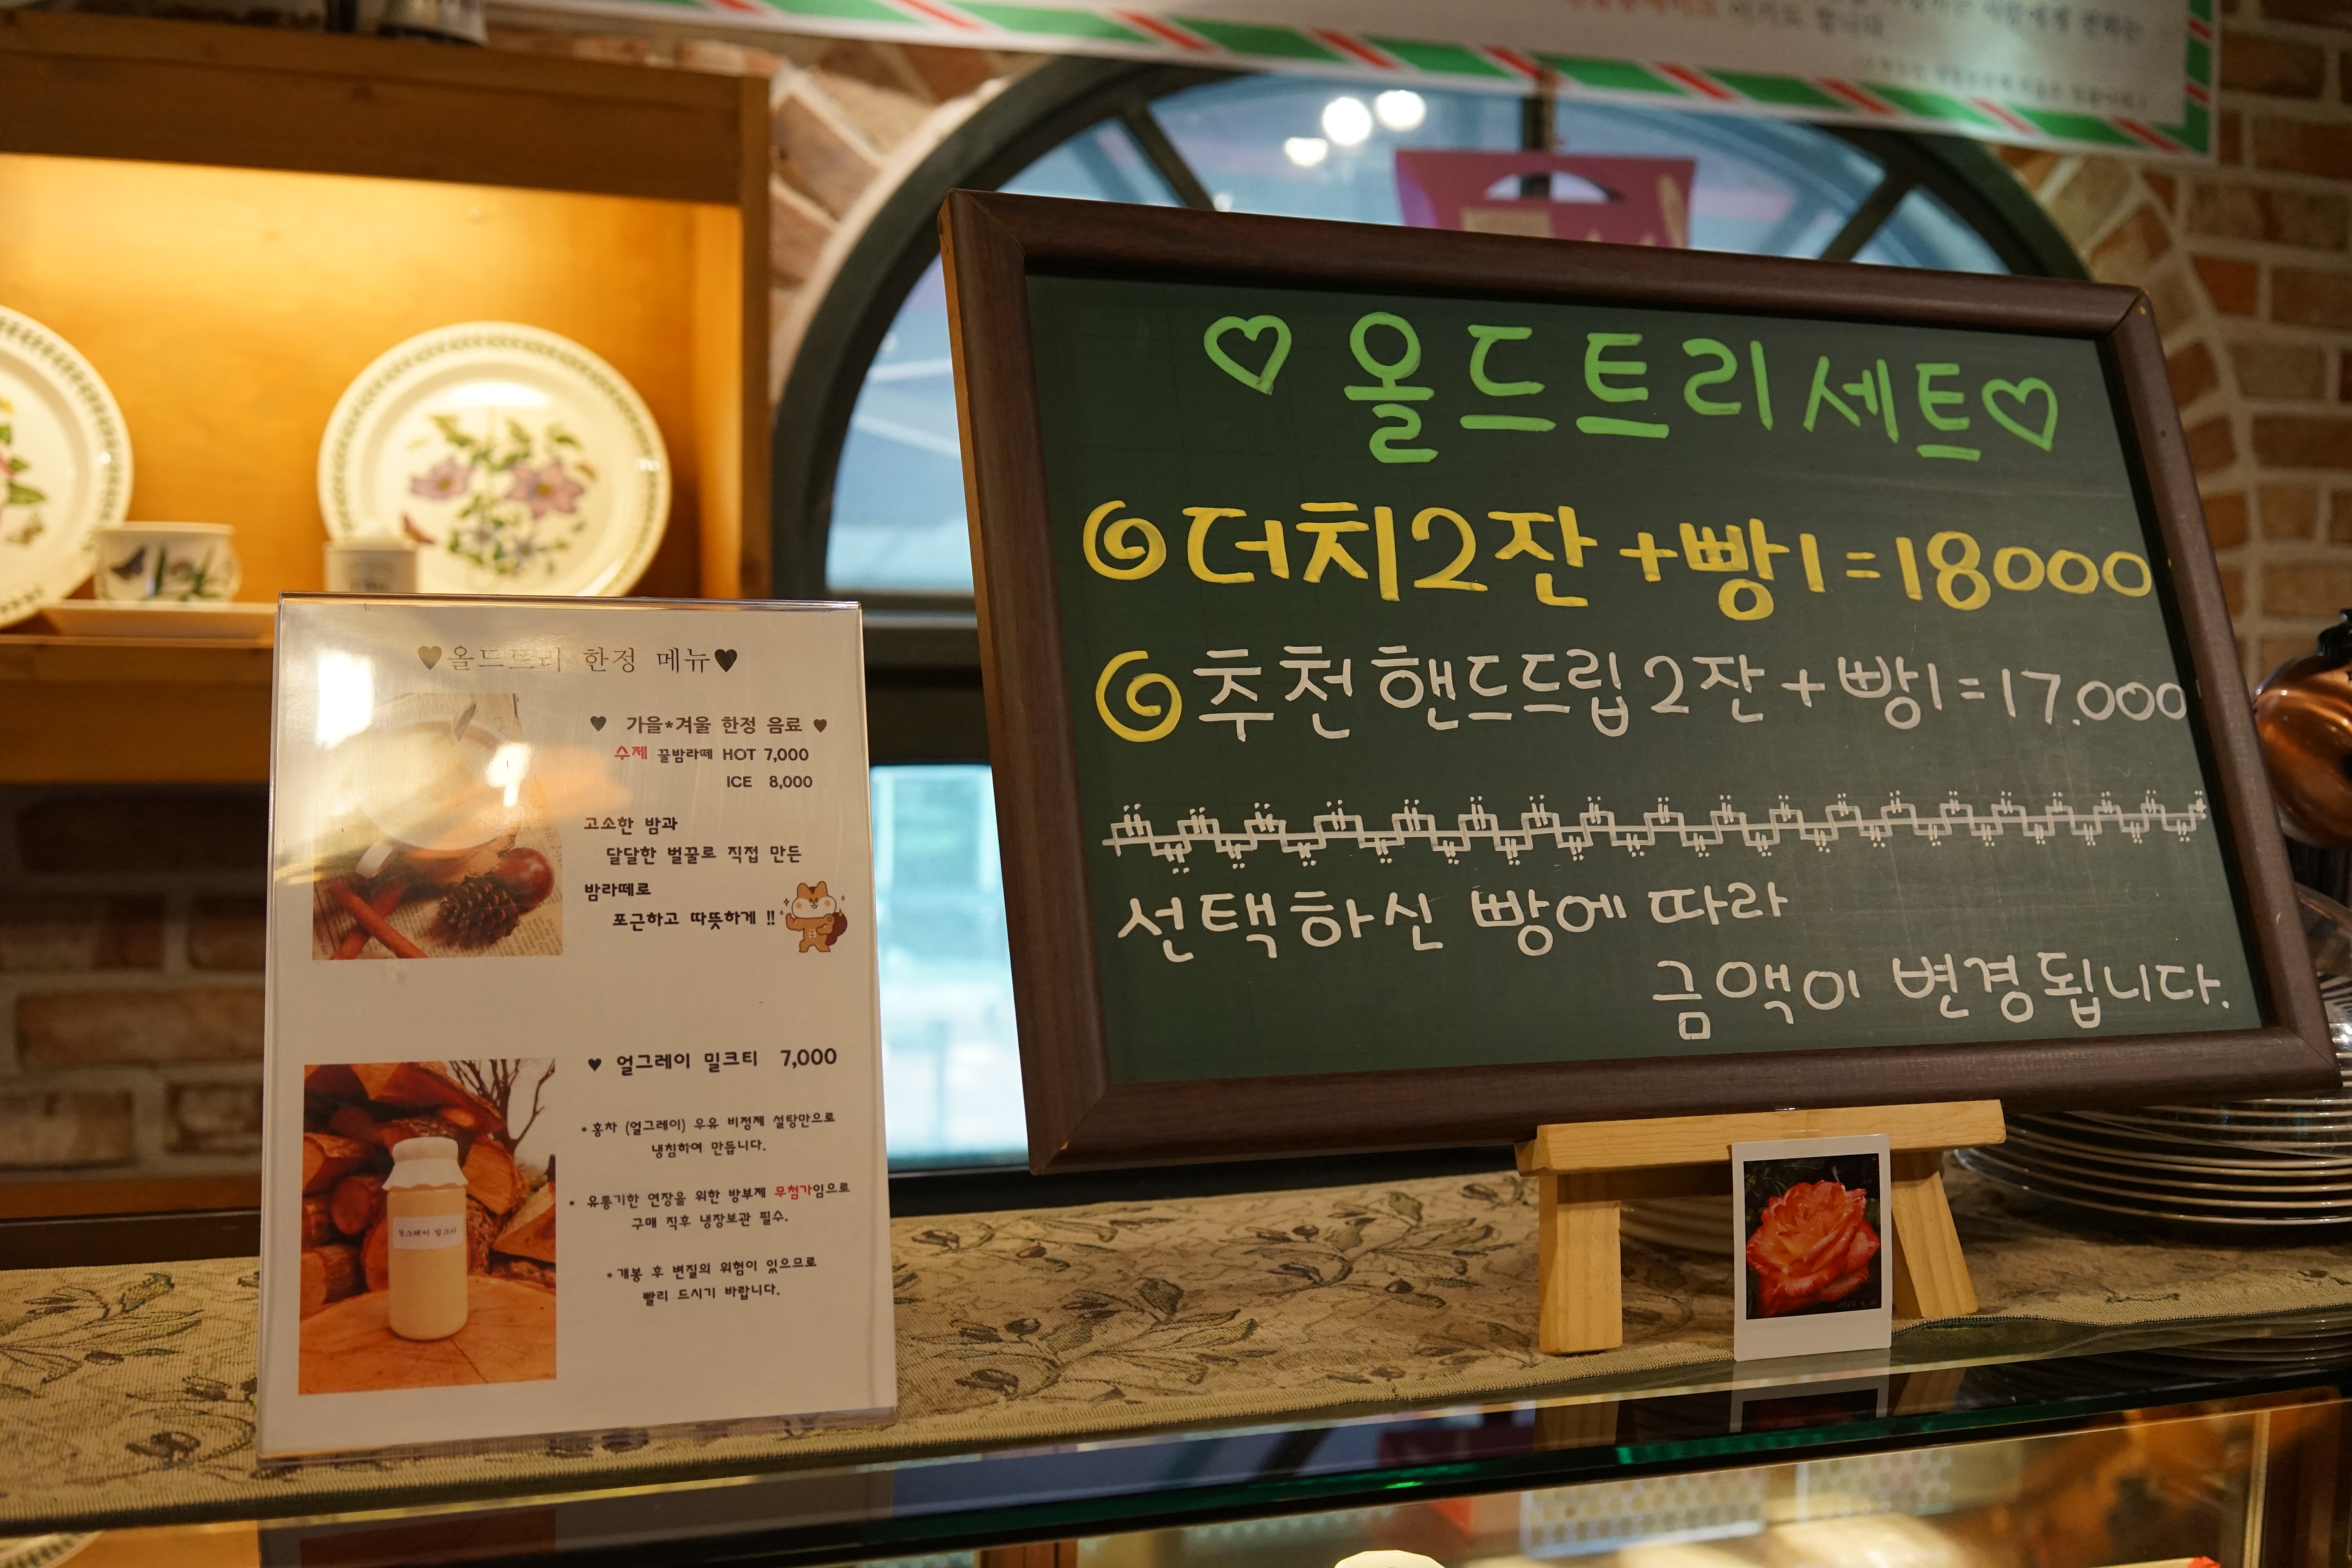 ♡ 올드트리세트♡
더치2잔+빵1=18000
추천핸드드립2잔+빵1=17.000
선택하신 빵에 따라
금액이 변경됩니다.
♥올드트리 한정 메뉴♥
♥ 가을*겨울 한정 음료 ♥
수제 꿀밤라떼 HOT 7,000
ICE 8,000
고소한 밤과
달달한 벌꿀로 직접 만든
밤라떼로
포근하고 따뜻하게 !!
♥ 얼그레이 밀크티 7,000
*홍차 (얼그레이) 우유 비정제 설탕만으로
냉침하여 만듭니다.
* 유통기한 연장을 위한 방부제 무첨가임으로
구매 직후 냉장보관 필수.
*개봉 후 변질의 위험이 있으므로
빨리 드시기 바랍니다.
얼그레이 밀크티